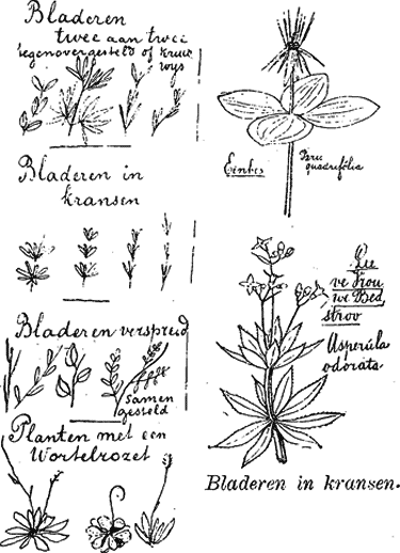 Bladeren
twee aan twee
tegenovergesteld of kruis
wys
Bladeren in
kransen
Bladeren verspreid
samen
gesteld
Planten met een
Wortelrozet
Eenbes
Paris
quadrifólia
Lie
ve Vrou
we Bed
stroo
Asperúla
odoráta.
Bladeren in kransen.